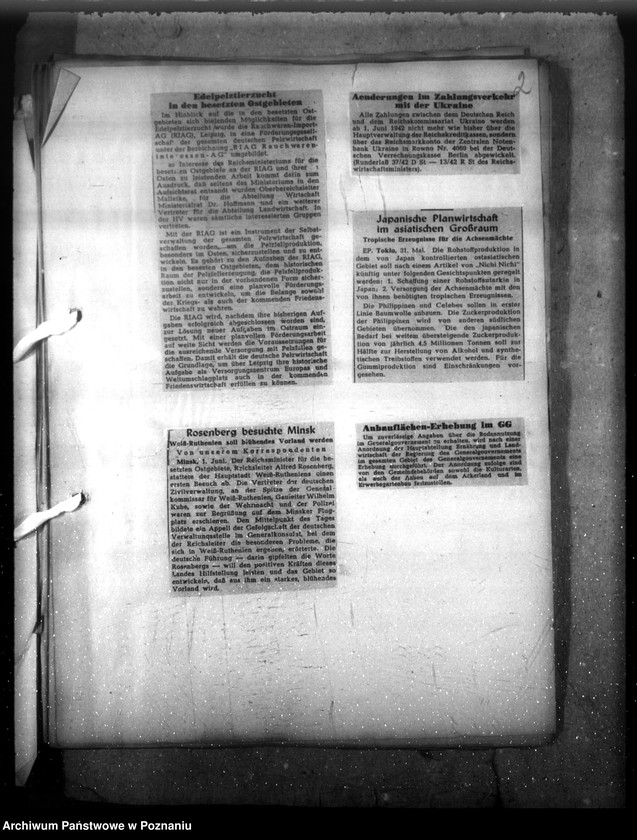 2
Edelpelztierzucht
in den besetzten Ostgebieten
Im Hinblick auf die in den besetzten Ost-
gebieten sich bietenden Möglichkeiten für die
Edelpelztierzucht wurde die Rauchwaren-Import-
AG (RIAG), Leipzig, in eine Förderungsgesell-
schaft der gesamten deutschen Pelzwirtschaft
unter der Bezeichnung „RIAG Rauchwaren-
Interessen-AG" umgebildet.
Interesse des Reichsministeriums für die
besetzten Ostgebiete an der RIAG und ihrer
Osten zu leistenden Arbeit kommt darin zum
Ausdruck, daß seitens des Ministeriums in den
Aufsichtsrat entsandt wurden Oberbereichsleiter
Malletke, für die Abteilung Wirtschaft
Ministerialrat Dr. Hoffmann und ein weiterer
Vertreter für die Abteilung Landwirtschaft. In
der HV waren sämtliche interessierten Gruppen
vertreten.
Mit der RIAG ist ein Instrument der Selbst-
verwaltung der gesamten Pelzwirtschaft ge-
schaffen worden, um die Pelzfellproduktion,
besonders im Osten, sicherzustellen und zu ent-
wickeln. Es gehört zu den Aufgaben des RIAG,
in den besetzten Ostgebieten, dem historischen
Raum der Pelzfellerzeugung, die Pelzfellproduk-
tion nicht nur in der vorhandenen Form sicher-
zustellen, sondern eine planvolle Förderungs-
arbeit zu entwickeln, um die Belange sowohl
der Kriegs- als auch der kommenden Friedens-
wirtschaft zu wahren.
Die RIAG wird, nachdem ihre bisherigen Auf-
gaben erfolgreich abgeschlossen worden sind,
zur Lösung neuer Aufgaben im Ostraum ein-
gesetzt. Mit einer planvollen Förderungsarbeit
auf weite Sicht werden die Voraussetzungen für
die ausreichende Versorgung mit Pelzfellen ge-
schaffen. Damit erhält die deutsche Pelzwirtschaft
die Grundlage, um über Leipzig ihre historische
Aufgabe als Versorgungszentrum Europas und
Weltumschlagplatz auch in der kommenden
Friedenswirtschaft erfüllen zu können.
Rosenberg besuchte Minsk
Weiß-Ruthenien soll blühendes Vorland werden
Von unserem Korrespondenten
Minsk, 1. Juni. Der Reichsminister für die be-
setzten Ostgebiete, Reichsleiter Alfred Rosenberg,
stattete der Hauptstadt Weiß-Rutheniens einen
ersten Besuch ab. Die Vertreter der deutschen
Zivilverwaltung, an der Spitze der General-
kommissar für Weiß-Ruthenien, Gauleiter Wilhelm
Kube, sowie der Wehrmacht und der Polizei
waren zur Begrüßung auf dem Minsker Flug-
platz erschienen. Den Mittelpunkt des Tages
bildete ein Appell der Gefolgschaft der deutschen
Verwaltungsstelle im Generalkonsulat, bei dem
der Reichsleiter die besonderen Probleme, die
sich in Weiß-Ruthenien ergeben, erörterte. Die
deutsche Führung — darin gipfelten die Worte
Rosenbergs — will den positiven Kräften dieses
Landes Hilfstellung leisten und das Gebiet so
entwickeln, daß aus ihm ein starkes, blühendes
Vorland wird.
Aenderungen im Zahlungsverkehr
mit der Ukraine
Alle Zahlungen zwischen dem Deutschen Reich
und dem Reichskommissariat Ukraine werden
ab 1. Juni 1942 nicht mehr wie bisher über die
Hauptverwaltung der Reichskreditkassen, sondern
über das Reichsmarkkonto der Zentralen Noten-
bank Ukraine in Rowno Nr. 4069 bei der Deut-
schen Verrechnungskasse Berlin abgewickelt.
(Runderlaß 37/42 D St — 13/42 R St des Reichs-
wirtschaftsministers).
Japanische Planwirtschaft
im asiatischen Großraum
Tropische Erzeugnisse für die Achsenmächte
EP. Tokio, 31. Mai. Die Rohstoffproduktion in
dem von Japan kontrollierten ostasiatischen
Gebiet soll nach einem Artikel von „Nichi Nichi"
künftig unter folgenden Gesichtspunkten geregelt
werden: 1. Schaffung einer Rohstoffautarkie in
Japan; 2. Versorgung der Achsenmächte mit den
von ihnen benötigten tropischen Erzeugnissen.
Die Philippinen und Celebes sollen in erster
Linie Baumwolle anbauen. Die Zuckerproduktion
der Philippinen wird von anderen südlichen
Gebieten übernommen. Die den japanischen
Bedarf bei weitem übersteigende Zuckerproduk-
tion von jährlich 4,5 Millionen Tonnen soll zur
Hälfte zur Herstellung von Alkohol und synthe-
tischen Treibstoffen verwendet werden. Für die
Gummiproduktion sind Einschränkungen vor-
gesehen.
Anbauflächen-Erhebung im GG
Um zuverlässige Angaben über die Bodennutzung
im Generalgouvernement zu erhalten, wird nach einer
Anordnung der Hauptabteilung Ernährung und Land-
wirtschaft der Regierung des Generalgouvernements
im gesamten Gebiet des Generalgouvernements eine
Erhebung durchgeführt. Der Anordnung zufolge sind
von den Gemeindebehörden sowohl die Kulturarten,
als auch der Anbau auf dem Ackerland und im
Erwerbsgartenbau festzustellen.
Archiwum Państwowe w Poznaniu